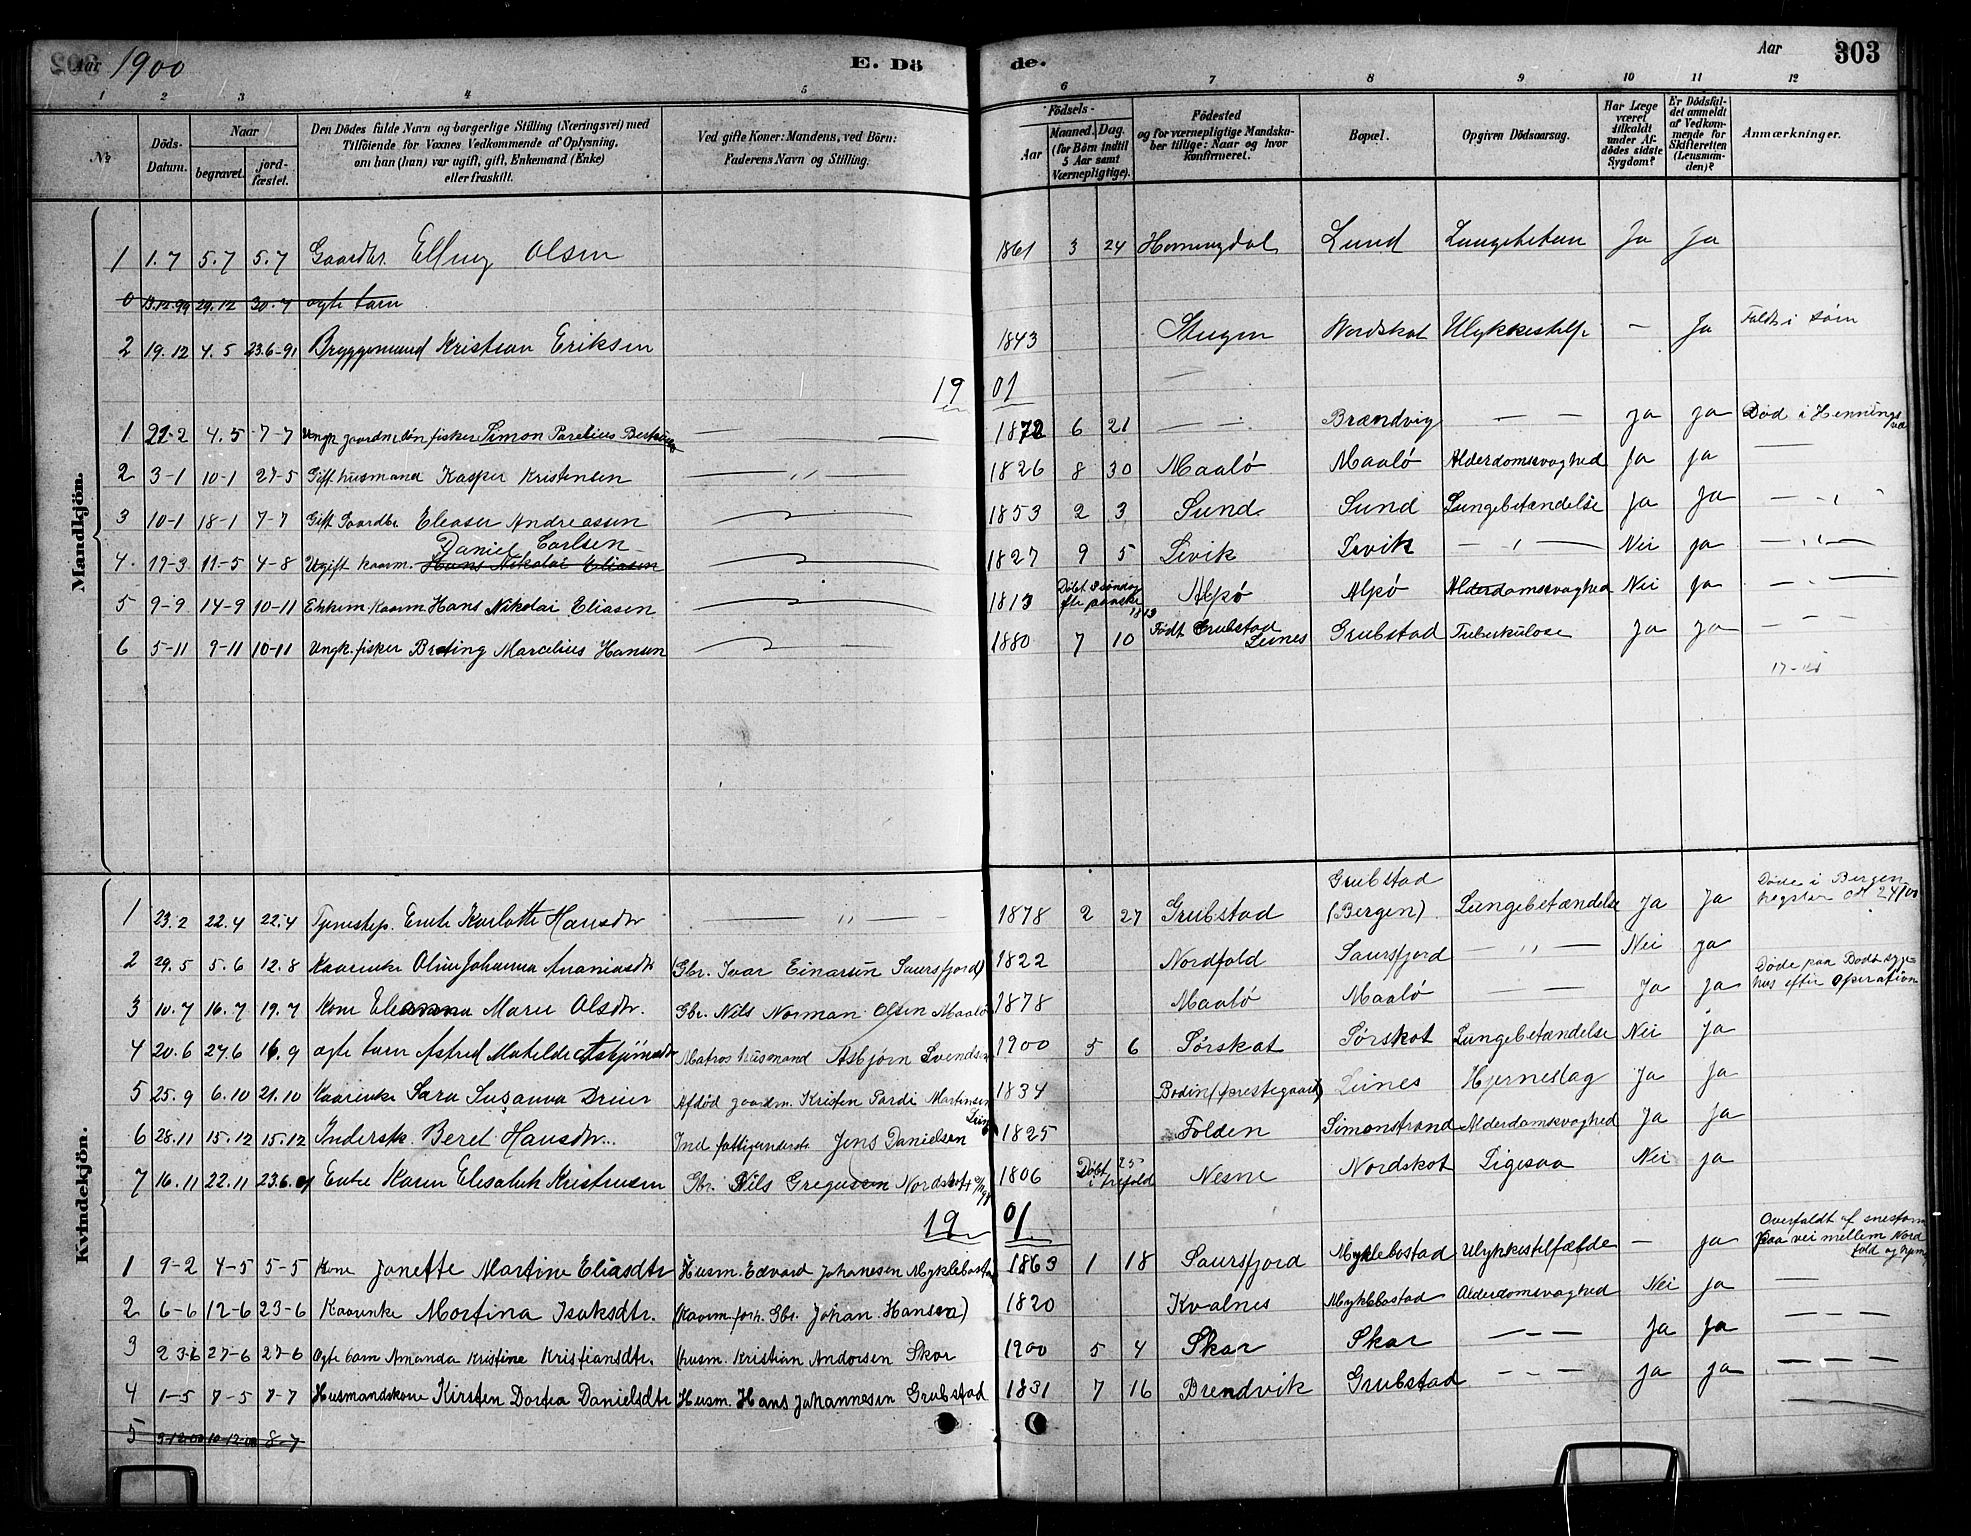 Aar 1900 E. Dö de. Aar 303
1 2 3 4 5 6 7 8 9 10 11 12
No.
Döds-Datum.
Naar
begravet.
jord-fæstet.
Den Dödes fulde Navn og borgerlige Stilling (Næringsvei) med
Tilföiende for Voxnes Vedkommende af Oplysning,
om han (hun) var ugift, gift, Enkemand (Enke)
eller fraskilt.
Ved gifte Koner: Mandens, ved Börn:
Faderens Navn og Stilling.
Födsels-
Aar
Maaned. Dag.
(for Börn indtil
5 Aar samt
Værnepligtige).
Födested
og for værnepligtige Mandska-
ber tillige: Naar og hvor
konfirmeret.
Bopæl.
Opgiven Dödsaarsag.
Har Læge
været
tilkaldt
under Af-
dödes sidste
Sygdom?
Er Dödsfal-
det anmeldt
af Vedkom-
mende for
Skifteretten
(Lensman-
den)?
Anmærkninger.
Mandkjön.
1 1.7 5.7 5.7 Gaardbr. Elling Olsen 1861 3 24 Hemingdal Lund Ja Ja
0 13.12.99 29.12 30.7 ægte barn
2 19.12 4.5 23.6-91 Bryggemand Kristian Eriksen 1843 Nordskot — Ja Faldt i søen
19 01
1 4.5 7-7 Ungk. fisker Simon Parelius 1872 6 21 — Brændvig — — Ja Ja Død i Hennings
2 3-1 10-1 27-5 Gift husmand Kasper Kristensen — „ — 1826 8 30 Maalö Maalö Alderdomsvaghed Ja Ja —
3 10-1 18-1 7-7 Gift Gaardbr Eleaser Andreassen — 1853 2 3 Sund Sund Lungebetændelse Ja Ja — „ —
Daniel Carlsen
4. 19-3 11-5 4-8 Ugift kaarm. Hans Nikolai Eliasen — 1827 9 5 Levik — „ — Nei Ja — „ —
5 9-9 14-9 10-11 Enkem Kaarm Hans Nikolai Eliasen — 1813 Døbt søndag efter paaske 1813 Alpö Alpö Alderdomsvaghed Nei Ja — „ —
6 5-11 9-11 10-11 Ungk. fisker Marcelius Hansen — 1880 7 10 Født Grubstad Leines Grubstad Tuberkulose Ja Ja — — —
Kvindekjön.
1 23.2 22.4 22.4 Tjenestep. Karlotte Hansdtr — „ — 1878 2 27 Grubstad Grubstad (Bergen) Lungebetændelse Ja Ja Døde i Bergen
2 29.5 5.6 12.8 Kaarenke Oline Johanna Ananiasdtr (Gbr. Ivar Einarsen Saursfjord) 1822 Nordfold Saursfjord — „ — Nei Ja
3 10.7 16.7 19.7 Kone Eleanna Marie Olsdtr. Gbr. Nils Norman Olsen Maalö 1878 Maalö Maalö — — Ja Ja Døde paa Bodø syge-
hus efter Operation
4 20.6 27.6 16.9 ægte barn Astrid Matilde Asbjörnsdtr Matros husmand Asbjörn Svendsen 1900 5 6 Sörskot Sörskot Lungebetændelse Nei Ja
5 25.9 6.10 21.10 Kaarenke Sara Susanna Afdød gaardm. Kristen Pardi Martinsen Leines 1834 Bodin (Prestegaard) Leines Hjerneslag Ja Ja
6 28.11 15.12 15.12 Inderstk. Beret Hansdtr. Ind. Jens Danielsen 1825 Folden Simonstrand Alderdomsvaghed Ja Ja
7 16.11 22.11 23.6.01 Enke Karen Elisabeth Kristensen Gbr. Nils Gregussen Nordskot 1806 Døbt 25 Nesne Nordskot Ligesaa Nei Ja
19 01
1 9-2 4-5 5-5 Kone Jonette Martine Eliasdtr Husm. Edvard Johansen Myklebostad 1863 1 18 Saursfjord Myklebostad Ulykkestilfælde — Ja Overfaldt af snestorm
paa vei mellem Nord
fold og hjem
2 6-6 12-6 23-6 Kaarenke Mortina Isaksdtr. (Kaarm. forh. Gbr. Johan Hansen) 1820 Kvalnes Myklebostad Alderdomsvaghed Nei Ja —
3 23-6 27-6 27-6 Ægte barn Amanda Kristine Kristiansdtr. (husm. Kristian Andorsen Skar 1900 5 4 Skar Skar — — — Ja Ja — — —
4 1-5 7-5 7-7 Husmandskone Kirsten Dortea Danielsdtr Husm. Hans Johannesen Grubstad 1831 7 16 Brendvik Grubstad — „ — — Ja Ja — — —
5 9-12-00 10-12-00 8-7